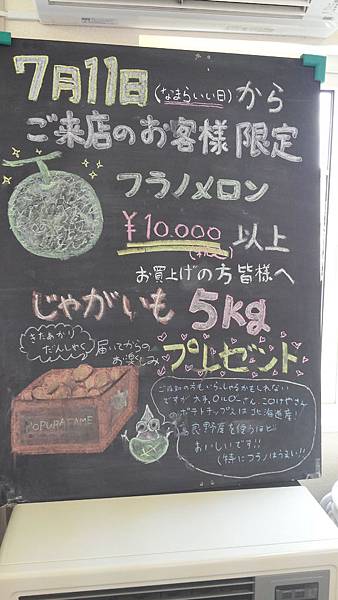 7月11日(なまらいい日)から
ご来店のお客様限定
フラノメロン
¥10.000以上
(税込)
お買上げの方皆様へ
じゃがいも 5kg
きたあかり
だんしゃく
届いてからの
お楽しみ
プレゼント
POPURAFAME
ご存知の方もいらっしゃるかもしれない
ですが 大手、カルビーさん、こいけやさん
のポテトチップスは北海道産!
良野産を使うほど
おいしいです!!
(特にフラノはうまい!!